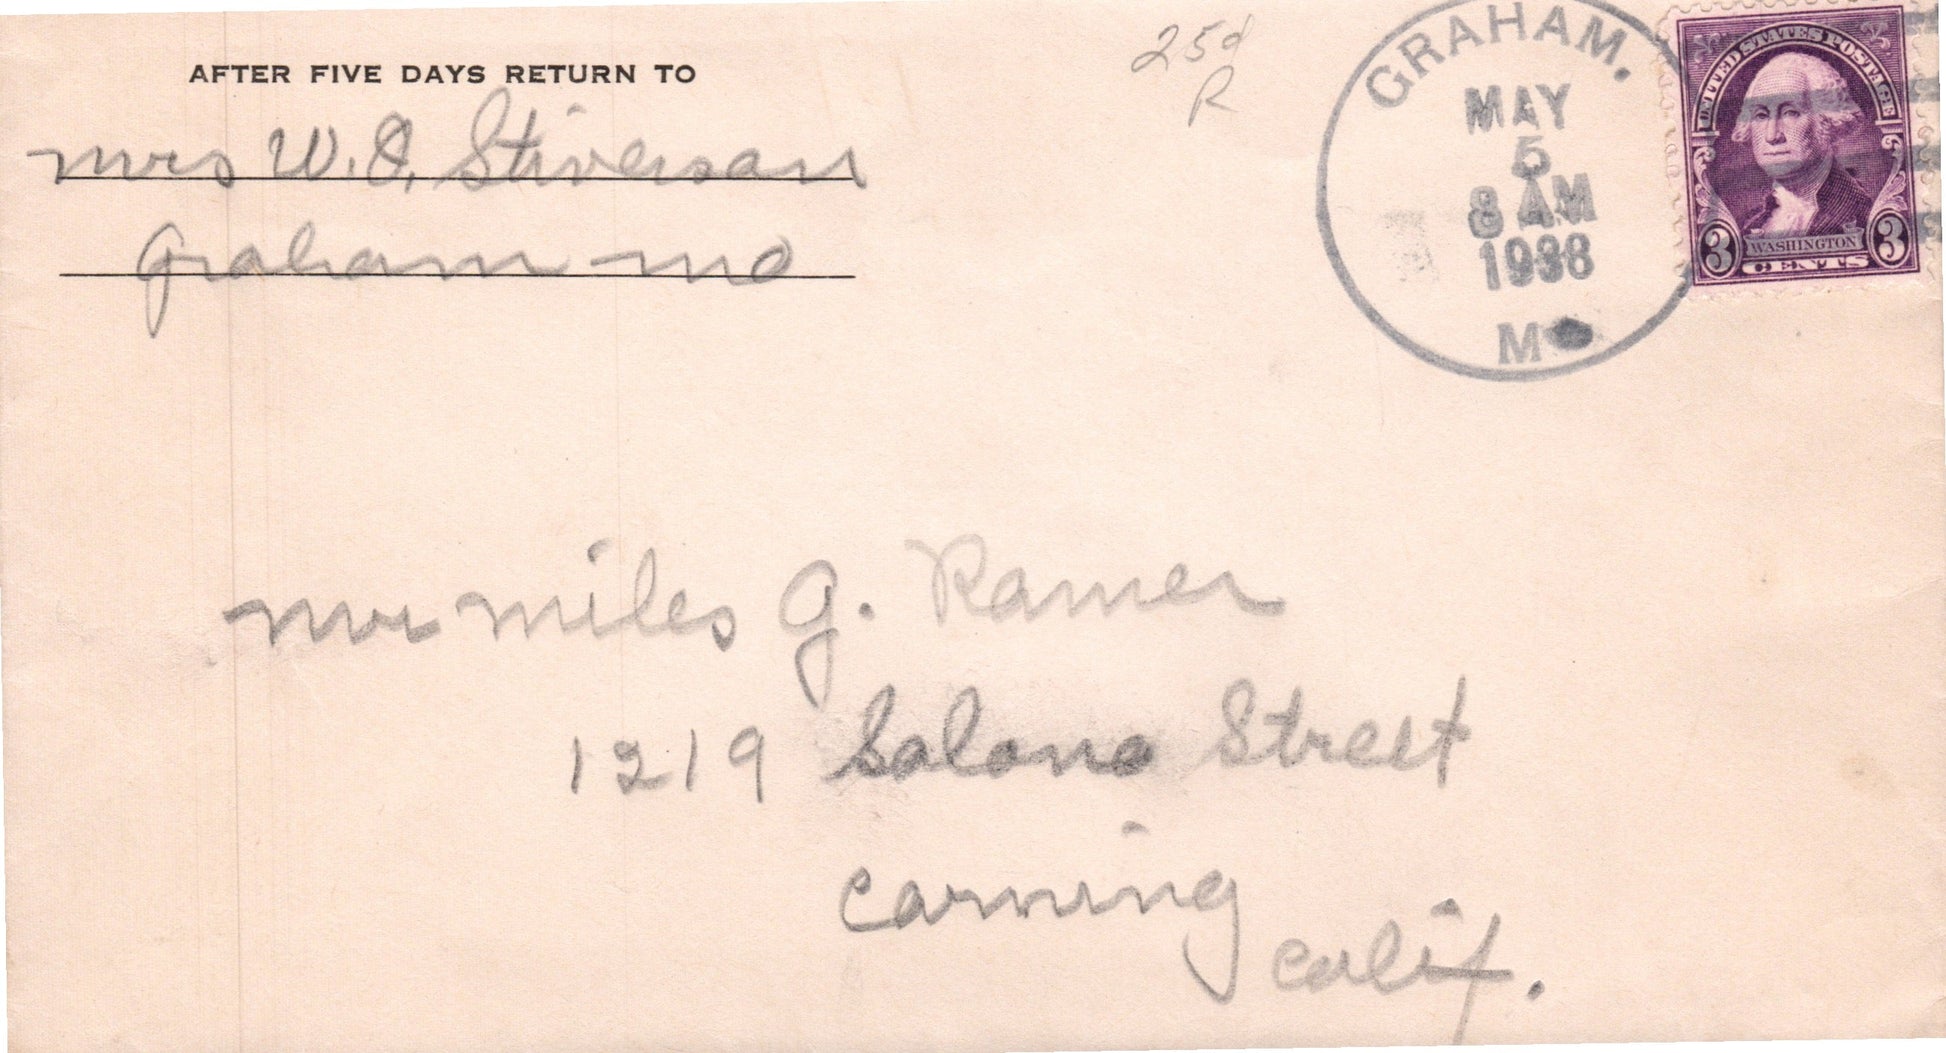 AFTER FIVE DAYS RETURN TO
Mrs W. O. Stiverson
Graham Mo
25¢
R
GRAHAM.
MAY
5
8 AM
1938
MO
UNITED STATES POSTAGE
WASHINGTON
3 CENTS 3
Mr Miles G. Ramer
1219 Solano Street
Corning
Calif.